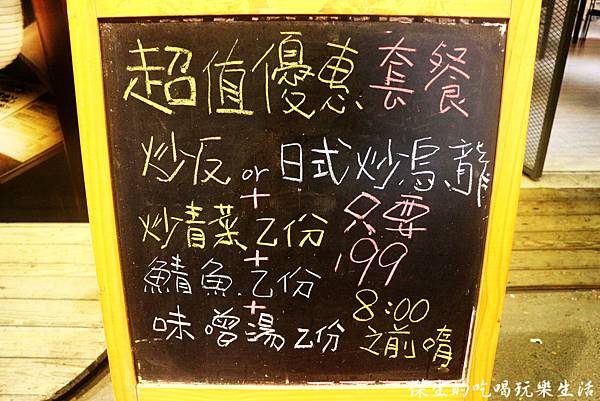 超值優惠套餐
炒反 or 日式炒烏龍
+
炒青菜乙份 只要
+
鯖魚.乙份 199
+
味噌湯乙份 8:00
之前唷
傑生的吃喝玩樂生活